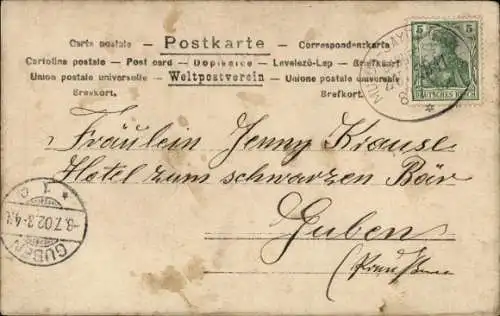 Carte postale — Postkarte — Correspondenzkarte
Cartolina postale — Post card — Dopisnice — Levelező-Lap — Brefkaart
Union postale universelle — Weltpostverein — Unione postale universale
Brevkort. Brefkort.
5 5
DEUTSCHES REICH
Fräulein Jenny Krause
Hotel zum schwarzen Bär
Guben
(Preussen
* 1 c
-8.7.02.3-4N
GUBEN